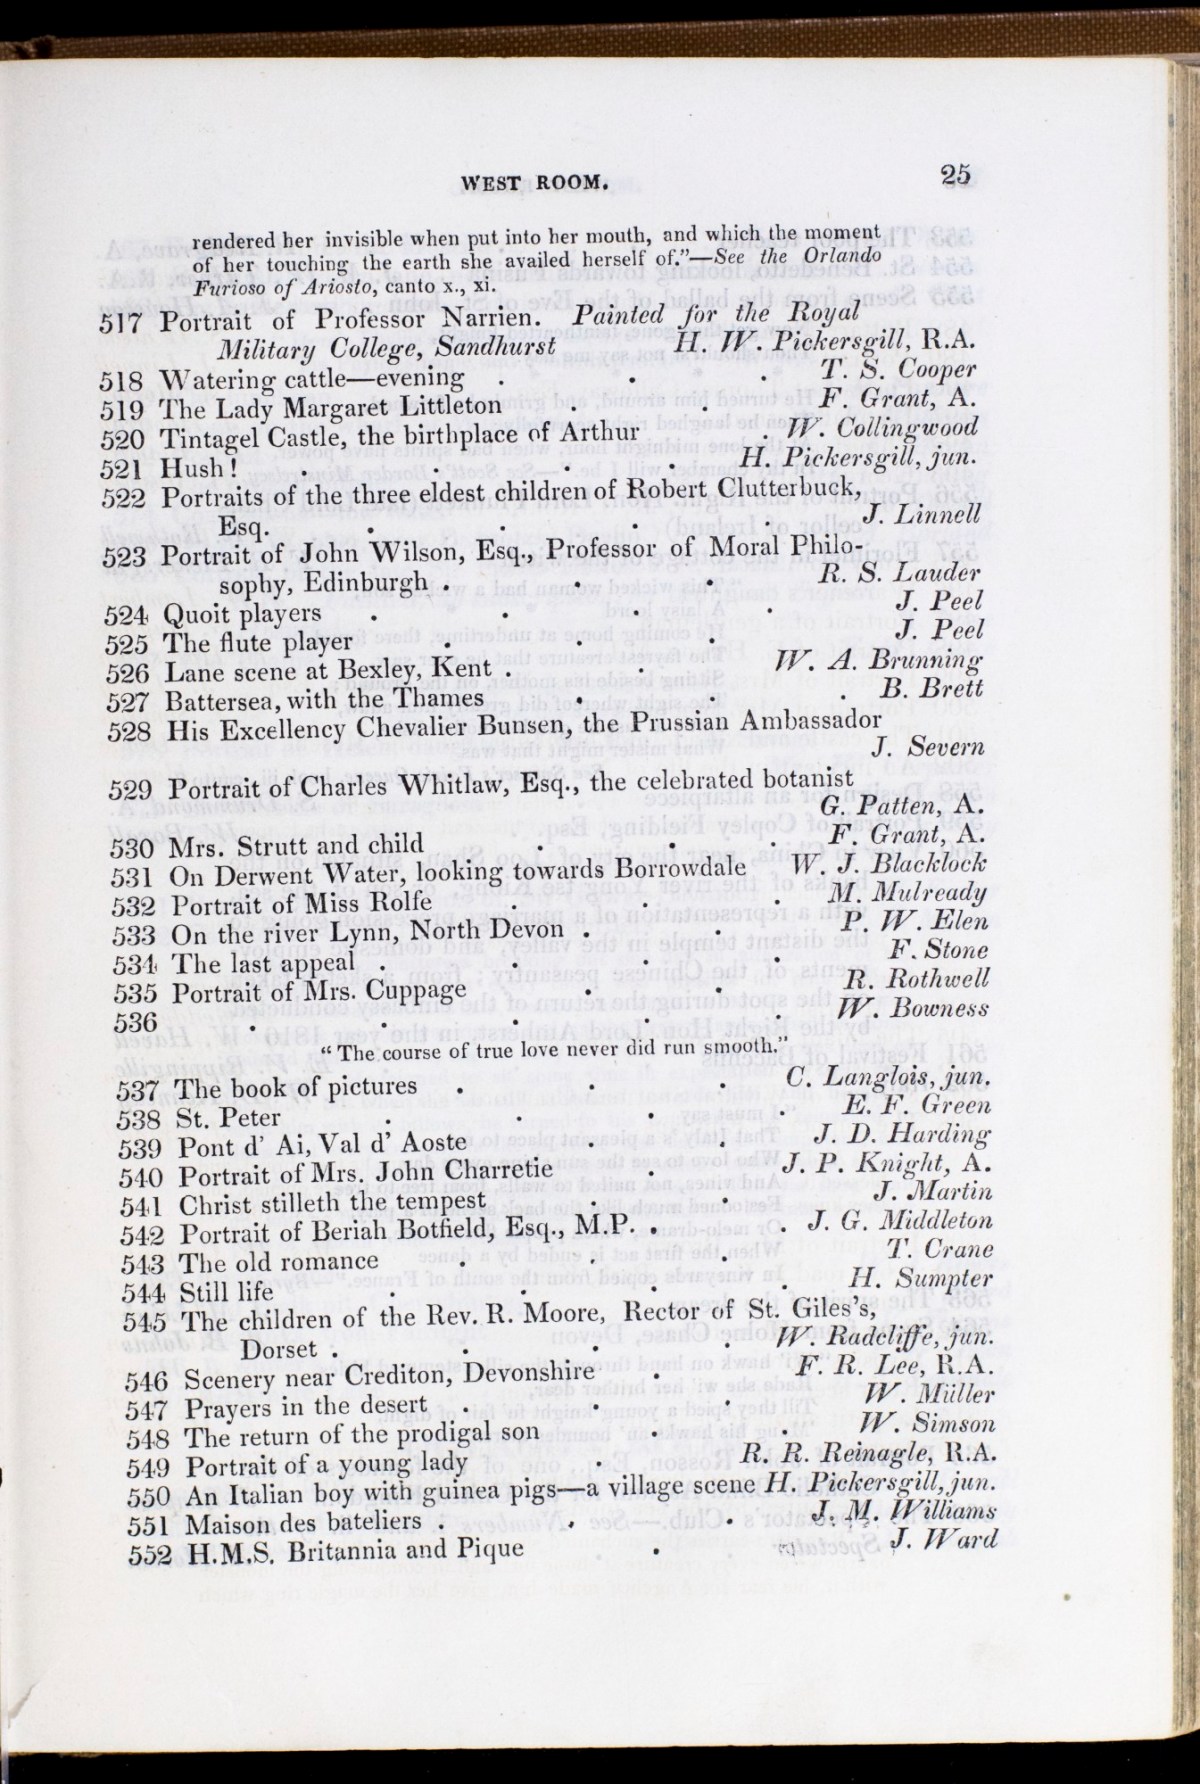 WEST ROOM. 25
rendered her invisible when put into her mouth, and which the moment
of her touching the earth she availed herself of."—See the Orlando
Furioso of Ariosto, canto x., xi.
517 Portrait of Professor Narrien. Painted for the Royal
Military College, Sandhurst H. W. Pickersgill, R.A.
518 Watering cattle—evening . . . T. S. Cooper
519 The Lady Margaret Littleton . . F. Grant, A.
520 Tintagel Castle, the birthplace of Arthur . W. Collingwood
521 Hush! . . . . H. Pickersgill, jun.
522 Portraits of the three eldest children of Robert Clutterbuck,
Esq. . . . . J. Linnell
523 Portrait of John Wilson, Esq., Professor of Moral Philo-
sophy, Edinburgh . . . R. S. Lauder
524 Quoit players . . . . J. Peel
525 The flute player . . . J. Peel
526 Lane scene at Bexley, Kent . . W. A. Brunning
527 Battersea, with the Thames . . . B. Brett
528 His Excellency Chevalier Bunsen, the Prussian Ambassador
J. Severn
529 Portrait of Charles Whitlaw, Esq., the celebrated botanist
G. Patten, A.
530 Mrs. Strutt and child . . . F Grant, A.
531 On Derwent Water, looking towards Borrowdale W. J. Blacklock
532 Portrait of Miss Rolfe . . . M. Mulready
533 On the river Lynn, North Devon . . P. W. Elen
534 The last appeal . . . . F. Stone
535 Portrait of Mrs. Cuppage . . R. Rothwell
536 . . . . . W. Bowness
"The course of true love never did run smooth."
537 The book of pictures . . . C. Langlois, jun.
538 St. Peter . . . . E. F. Green
539 Pont d' Ai, Val d' Aoste . . J. D. Harding
540 Portrait of Mrs. John Charretie . . J. P. Knight, A.
541 Christ stilleth the tempest . . J. Martin
542 Portrait of Beriah Botfield, Esq., M.P. . . J. G. Middleton
543 The old romance . . . T. Crane
544 Still life . . . . H. Sumpter
545 The children of the Rev. R. Moore, Rector of St. Giles's,
Dorset . . . . W. Radcliffe, jun.
546 Scenery near Crediton, Devonshire . F. R. Lee, R.A.
547 Prayers in the desert . . . W. Müller
548 The return of the prodigal son . . W. Simson
549 Portrait of a young lady . R. R. Reinagle, R.A.
550 An Italian boy with guinea pigs—a village scene H. Pickersgill, jun.
551 Maison des bateliers . . . J. M. Williams
552 H.M.S. Britannia and Pique . J. Ward